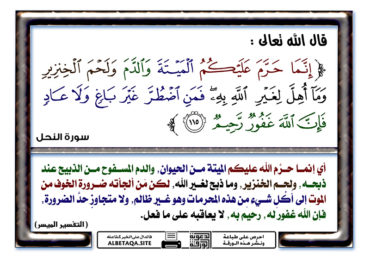 قال الله تعالى :
﴿ إِنَّمَا حَرَّمَ عَلَيْكُمُ الْمَيْتَةَ وَالدَّمَ وَلَحْمَ الْخِنزِيرِ
وَمَا أُهِلَّ لِغَيْرِ اللَّهِ بِهِ ۖ فَمَنِ اضْطُرَّ غَيْرَ بَاغٍ وَلَا عَادٍ
فَإِنَّ اللَّهَ غَفُورٌ رَحِيمٌ ١١٥ ﴾
سورة النحل
أي إنما حرَّم الله عليكم الميتة من الحيوان، والدم المسفوح من الذبيح عند
ذبحه، ولحم الخنزير، وما ذبح لغير الله، لكن مَن ألجأته ضرورة الخوف من
الموت إلى أكل شيء من هذه المحرمات وهو غير ظالم، ولا متجاوزٍ حدَّ الضرورة،
فإن الله غفور له، رحيم به، لا يعاقبه على ما فعل.
(التفسير الميسر)
احرص على طباعة
ونشر هذه الورقة
ALBETAQA.SITE